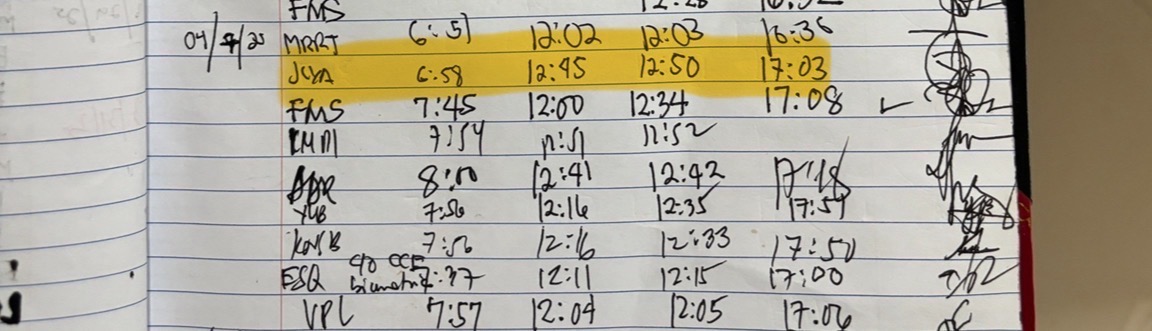 FMS
04/7/25 MRRJ 6:51 12:02 12:03 16:36
JCYA 6:58 12:45 12:50 17:03
FMS 7:45 12:00 12:34 17:08
7:54 11:51 11:52
8:00 12:41 12:42 17:18
YLB 7:56 12:16 12:35 17:51
7:56 12:16 12:33 17:50
ESQ c/o CCE biometric 7:37 12:11 12:15 17:00
VPL 7:57 12:04 12:05 17:06